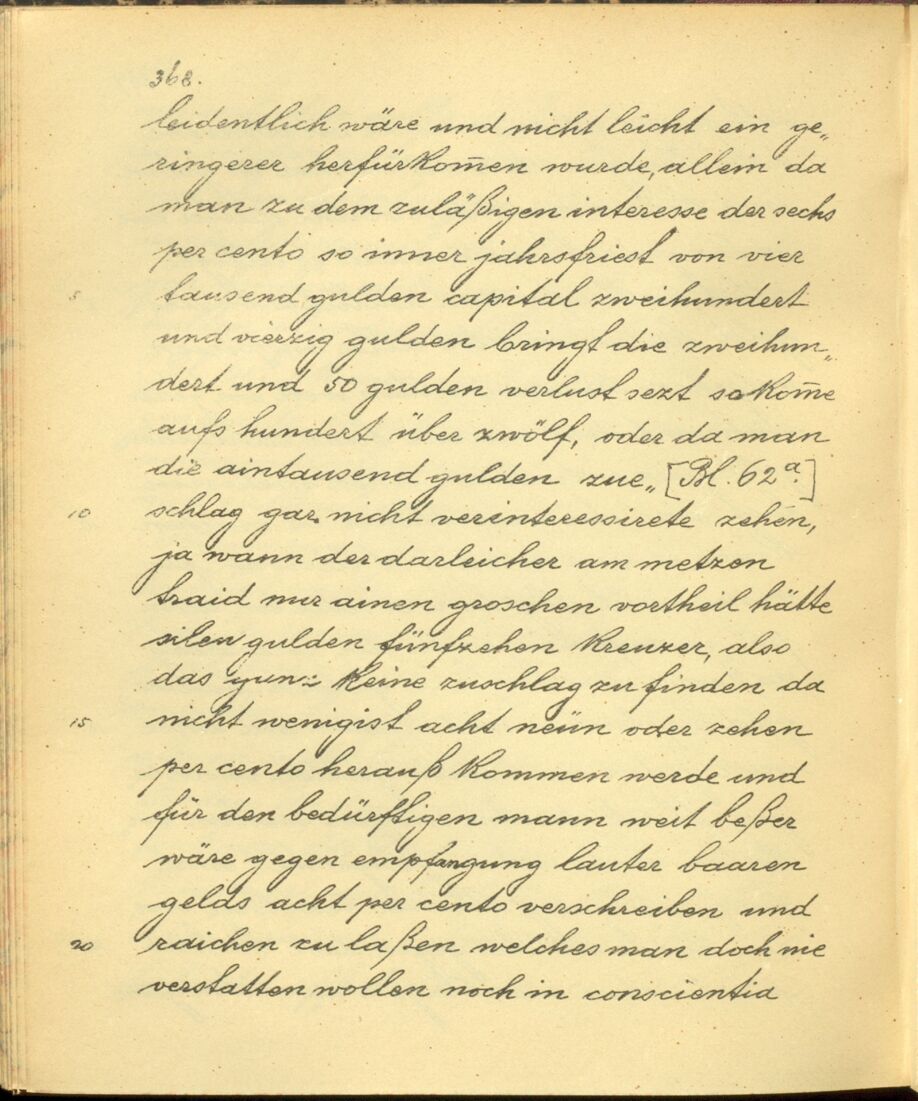 368.
leidentlich wäre und nicht leicht ein ge„
ringerer herfürkom̄en wurde, allein da
man zu dem zuläßigen interesse der sechs
per cento so inner jahrsfriest von vier
5 tausend gulden capital zweihundert
und vierzig gulden bringt die zweihun„
dert und 50 gulden verlust sezt so kom̄e
aufs hundert über zwölf, oder da man
die aintausend gulden zue„ [Bl. 62a.]
10 schlag gar nicht verinteressirete zehen,
ja wann der darleicher am metzen
traid nur ainen groschen vortheil hätte
gulden fünfzehen kreuzer, also
das keine zuschlag zu finden da
15 nicht wenigist acht neün oder zehen
per cento herauß kommen werde und
für den bedürftigen mann weit beßer
wäre gegen empfangung lauter baaren
gelds acht per cento verschreiben und
20 raichen zu laßen welches man doch nie
verstatten wollen noch in conscientia